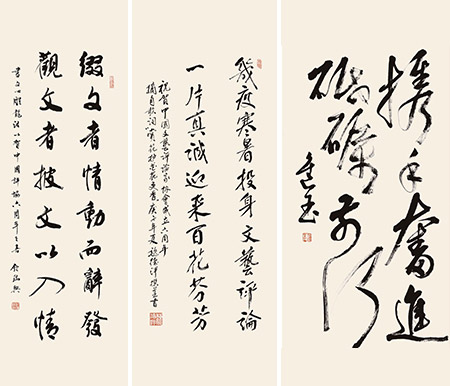 綴文者情動而辭發
觀文者披文以入情
書文心雕龍語以賀中國評協六周年之喜
幾度寒暑投身文藝評論
一片真誠迎來百花芬芳
祝賀中國文藝評論家協會成立六周年
携手奮進
砥礪前行